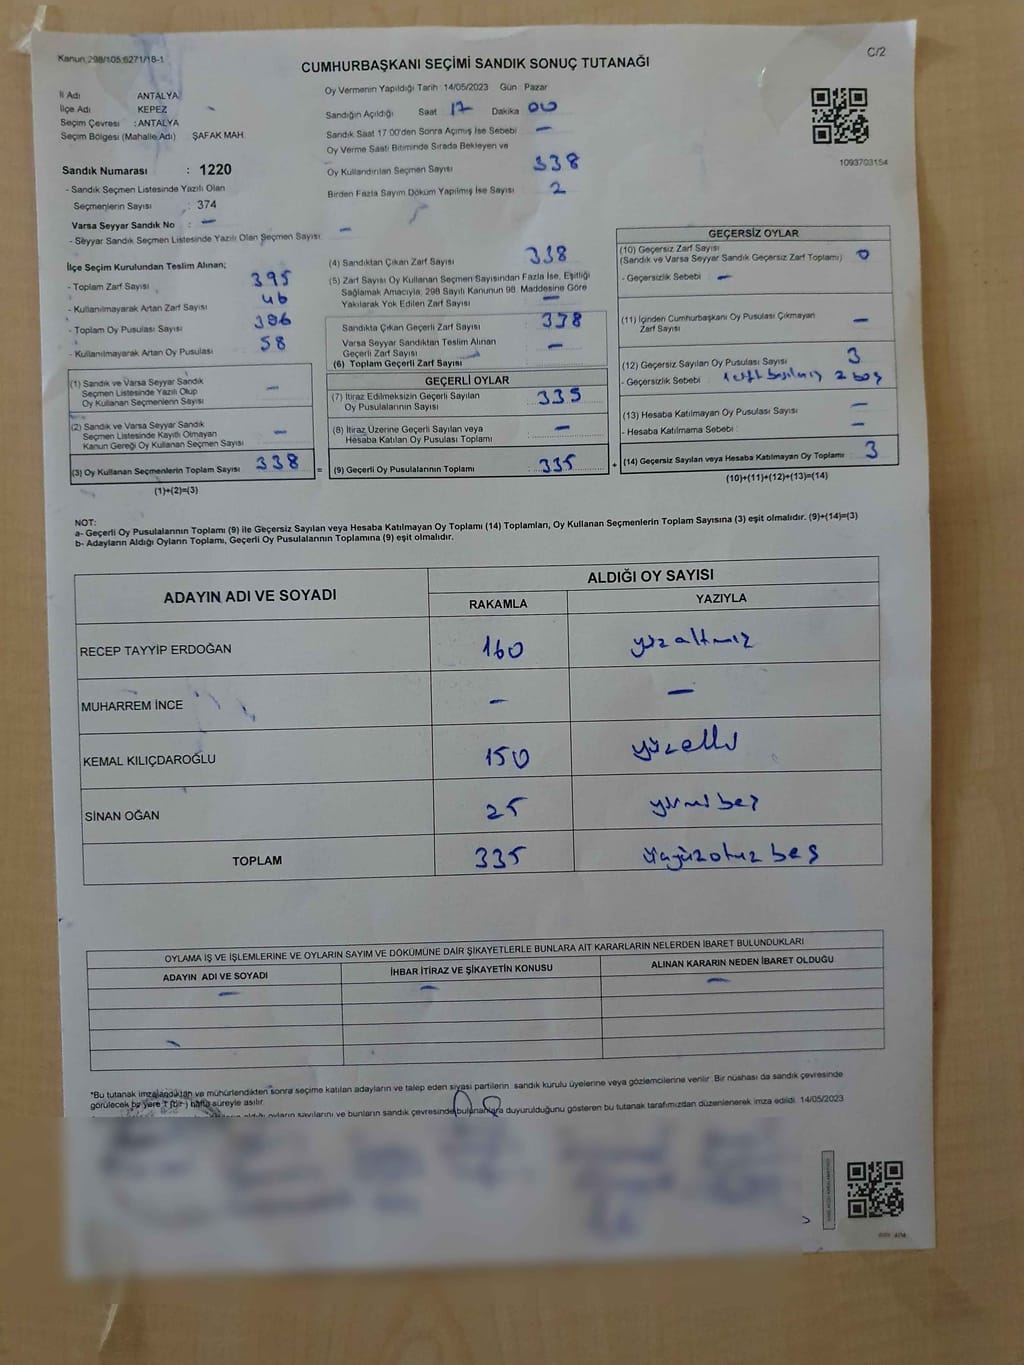 Kanun 298/105,6271/18-1
C/2
CUMHURBAŞKANI SEÇİMİ SANDIK SONUÇ TUTANAĞI
İl Adı ANTALYA
İlçe Adı KEPEZ
Seçim Çevresi : ANTALYA
Seçim Bölgesi (Mahalle Adı) ŞAFAK MAH.
Oy Vermenin Yapıldığı Tarih 14/05/2023 Gün Pazar
Sandığın Açıldığı Saat 17 Dakika 00
Sandık Saat 17:00'den Sonra Açımış İse Sebebi —
Oy Verme Saati Bitiminde Sırada Bekleyen ve
Oy Kullandırılan Seçmen Sayısı 338
Birden Fazla Sayım Döküm Yapılmış İse Sayısı 2
1093703154
Sandık Numarası : 1220
- Sandık Seçmen Listesinde Yazılı Olan
Seçmenlerin Sayısı : 374
Varsa Seyyar Sandık No : —
- Seyyar Sandık Seçmen Listesinde Yazılı Olan Seçmen Sayısı —
İlçe Seçim Kurulundan Teslim Alınan;
- Toplam Zarf Sayısı 395
- Kullanılmayarak Artan Zarf Sayısı 46
- Toplam Oy Pusulası Sayısı 396
- Kullanılmayarak Artan Oy Pusulası 58
(1) Sandık ve Varsa Seyyar Sandık
Seçmen Listesinde Yazılı Olup
Oy Kullanan Seçmenlerin Sayısı —
(2) Sandık ve Varsa Seyyar Sandık
Seçmen Listesinde Kayıtlı Olmayan
Kanun Gereği Oy Kullanan Seçmen Sayısı —
(3) Oy Kullanan Seçmenlerin Toplam Sayısı 338 =
(1)+(2)=(3)
(4) Sandıktan Çıkan Zarf Sayısı 338
(5) Zarf Sayısı Oy Kullanan Seçmen Sayısından Fazla İse, Eşitliği
Sağlamak Amacıyla, 298 Sayılı Kanunun 98. Maddesine Göre
Yakılarak Yok Edilen Zarf Sayısı —
Sandıkta Çıkan Geçerli Zarf Sayısı 338
Varsa Seyyar Sandıktan Teslim Alınan
Geçerli Zarf Sayısı —
(6) Toplam Geçerli Zarf Sayısı
GEÇERLİ OYLAR
(7) İtiraz Edilmeksizin Geçerli Sayılan
Oy Pusulalarının Sayısı 335
(8) İtiraz Üzerine Geçerli Sayılan veya
Hesaba Katılan Oy Pusulası Toplamı —
(9) Geçerli Oy Pusulalarının Toplamı 335 +
GEÇERSİZ OYLAR
(10) Geçersiz Zarf Sayısı
(Sandık ve Varsa Seyyar Sandık Geçersiz Zarf Toplamı) 0
- Geçersizlik Sebebi —
(11) İçinden Cumhurbaşkanı Oy Pusulası Çıkmayan
Zarf Sayısı —
(12) Geçersiz Sayılan Oy Pusulası Sayısı 3
- Geçersizlik Sebebi 1 çift basılmış 2 boş
(13) Hesaba Katılmayan Oy Pusulası Sayısı —
- Hesaba Katılmama Sebebi : —
(14) Geçersiz Sayılan veya Hesaba Katılmayan Oy Toplamı 3
(10)+(11)+(12)+(13)=(14)
NOT:
a- Geçerli Oy Pusulalarının Toplamı (9) ile Geçersiz Sayılan veya Hesaba Katılmayan Oy Toplamı (14) Toplamları, Oy Kullanan Seçmenlerin Toplam Sayısına (3) eşit olmalıdır. (9)+(14)=(3)
b- Adayların Aldığı Oyların Toplamı, Geçerli Oy Pusulalarının Toplamına (9) eşit olmalıdır.
ADAYIN ADI VE SOYADI ALDIĞI OY SAYISI
RAKAMLA YAZIYLA
RECEP TAYYİP ERDOĞAN 160 yüz altmış
MUHARREM İNCE — —
KEMAL KILIÇDAROĞLU 150 yüzelli
SİNAN OĞAN 25 yirmi beş
TOPLAM 335 üçyüzotuz beş
OYLAMA İŞ VE İŞLEMLERİNE VE OYLARIN SAYIM VE DÖKÜMÜNE DAİR ŞİKAYETLERLE BUNLARA AİT KARARLARIN NELERDEN İBARET BULUNDUKLARI
ADAYIN ADI VE SOYADI İHBAR İTİRAZ VE ŞİKAYETİN KONUSU ALINAN KARARIN NEDEN İBARET OLDUĞU
— — —
*Bu tutanak imzalandıktan ve mühürlendikten sonra seçime katılan adayların ve talep eden siyasi partilerin sandık kurulu üyelerine veya gözlemcilerine verilir. Bir nüshası da sandık çevresinde
görülecek bir yere 1 (bir) hafta süreyle asılır.
oyların sayılarını ve bunların sandık çevresinde bulunanlara duyurulduğunu gösteren bu tutanak tarafımızdan düzenlenerek imza edildi. 14/05/2023